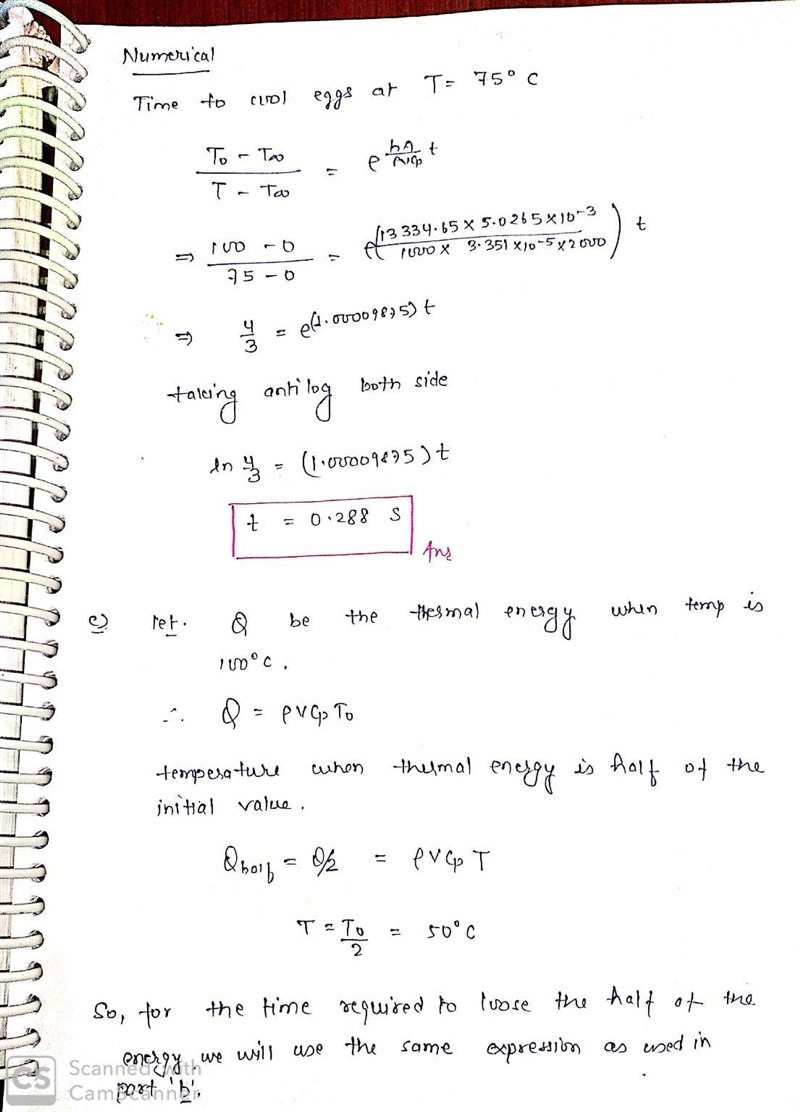 Numerical
Time to cool eggs at T = 75° C
T₀ - T∞ / T - T∞ = e^(hA / ρVCp) t
⇒ 100 - 0 / 75 - 0 = e^(13334.65 × 5.0265 × 10⁻³ / 1000 × 3.351 × 10⁻⁵ × 2000) t
⇒ 4/3 = e^(1.00009875) t
taking antilog both side
ln 4/3 = (1.00009875) t
t = 0.288 S
Ans
c) let. Q be the thermal energy when temp is
100°C.
∴ Q = ρVCp T₀
temperature when thermal energy is half of the
initial value.
Q half = Q/2 = ρVCp T
T = T₀/2 = 50°C
So, for the time required to loose the half of the
energy, we will use the same expression as used in
part 'b'.
CS Scanned with
CamScanner